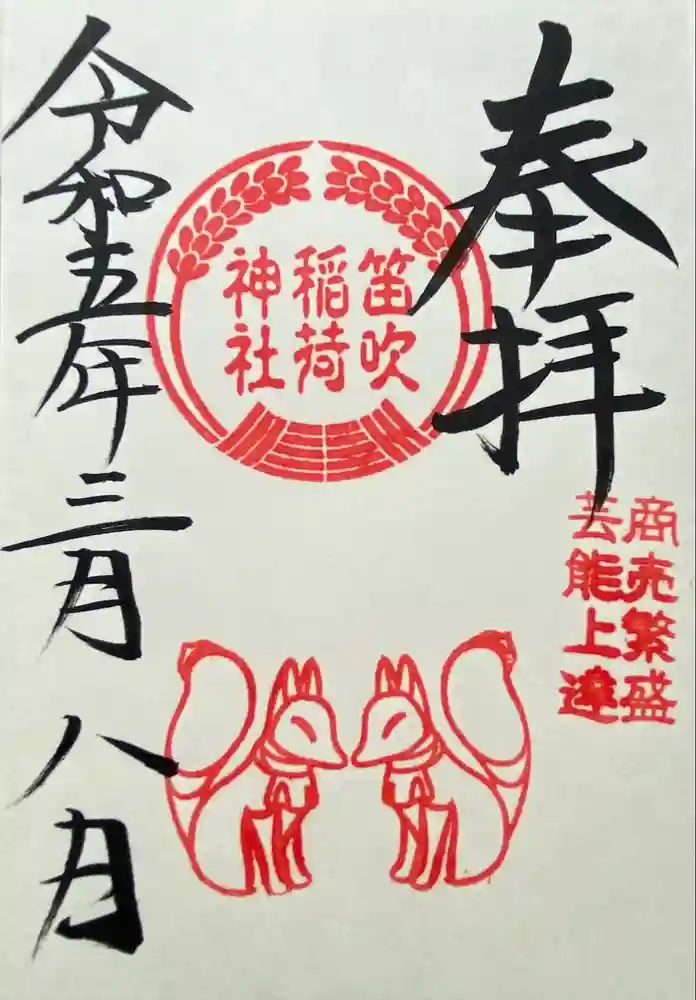 奉拝
商売繁盛
芸能上達
笛吹
稲荷
神社
令和五年三月八日